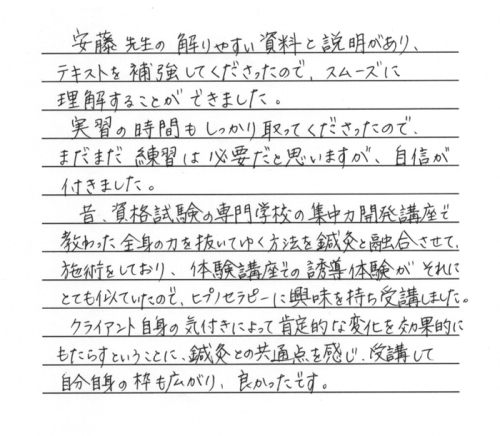 安藤先生の解りやすい資料と説明があり、
テキストを補強してくださったので、スムーズに
理解することができました。
実習の時間もしっかり取ってくださったので、
まだまだ練習は必要だと思いますが、自信が
付きました。
昔、資格試験の専門学校の集中力開発講座で
教わった全身の力を抜いてゆく方法を鍼灸と融合させて、
施術をしており、体験講座での誘導体験がそれに
とても似ていたので、ヒプノセラピーに興味を持ち受講しました。
クライアント自身の気付きによって肯定的な変化を効果的に
もたらすということに、鍼灸との共通点を感じ、受講して
自分自身の枠も広がり、良かったです。